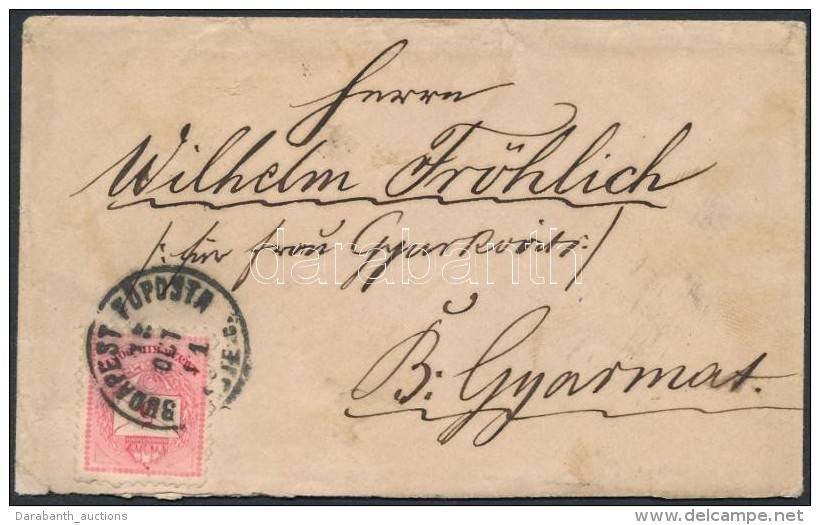 Herrn
Wilhelm Fröhlich
/: für Frau Gyurkovits :/
B: Gyarmat.
BUDAPEST FŐPOSTA
darabanth
Darabanth_auctions
posta-net